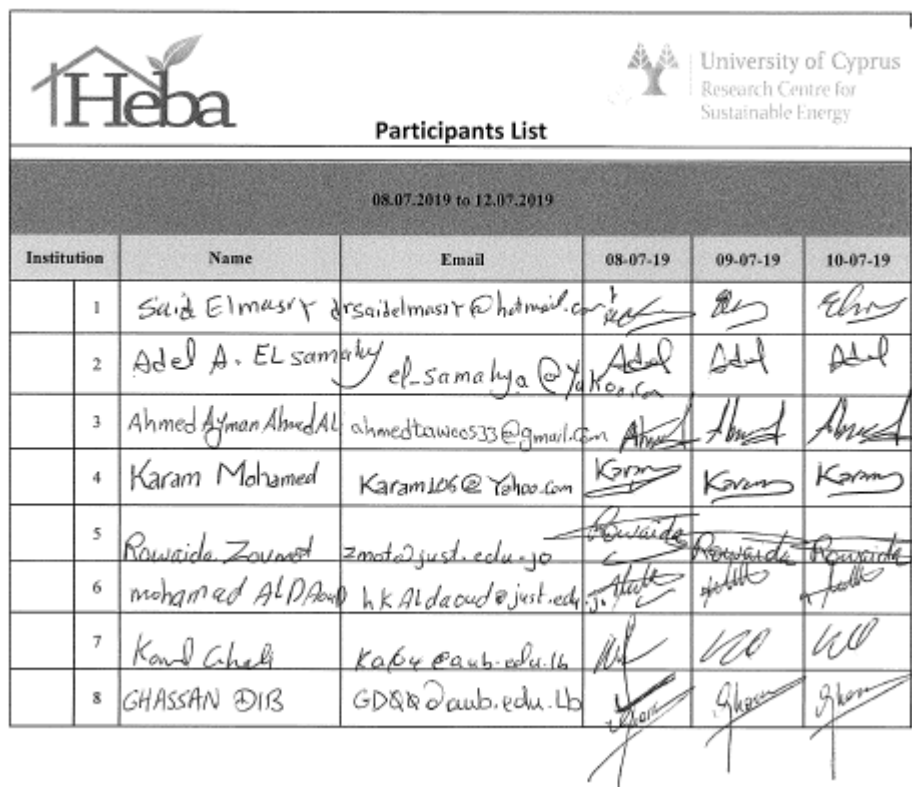 Heba
University of Cyprus
Research Centre for
Sustainable Energy
Participants List
08.07.2019 to 12.07.2019
Institution Name Email 08-07-19 09-07-19 10-07-19
1 Said Elmasry drsaidelmasry@hotmail.com
2 Adel A. EL samahy el_samahya@yahoo.com Adel Adel Adel
3 Ahmed Ayman Ahmed AL ahmedtawees33@gmail.com Ahmed Ahmed Ahmed
4 Karam Mohamed Karam106@Yahoo.com Karam Karam Karam
5 Rowaida Zoumot zmot@just.edu.jo Rowaida Rowaida Rowaida
6 mohamad ALDAoud hkALdaoud@just.edu.jo
7 Ghali @aub.edu.lb
8 GHASSAN DIB GDQQ@aub.edu.lb